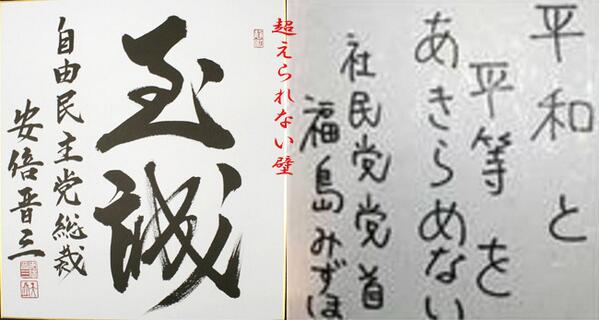 至誠
自由民主党総裁
安倍晋三
超えられない壁
平和と
平等を
あきらめない
社民党党首
福島みずほ